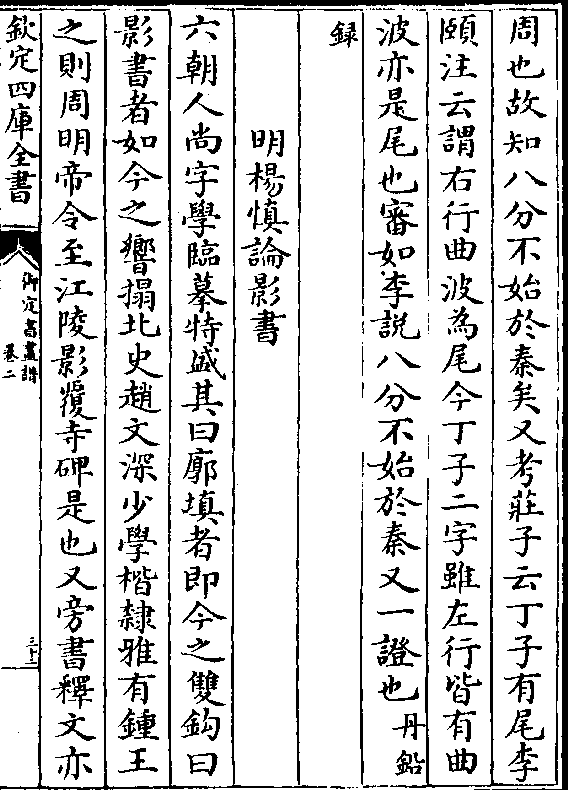 周也故知八分不始於秦矣又考莊子云丁子有尾李
頤注云謂右行曲波為尾今丁子二字雖左行皆有曲
波亦是尾也審如李說八分不始於秦又一證也丹鉛
録
明楊慎論影書
六朝人尚字學臨摹特盛其曰廓填者即今之雙鈎曰
影書者如今之響搨北史趙文深少學楷隸雅有鍾王
之則周明帝令至江陵影覆寺碑是也又旁書釋文亦
欽定四庫全書
御定書畫譜
卷二
三十二